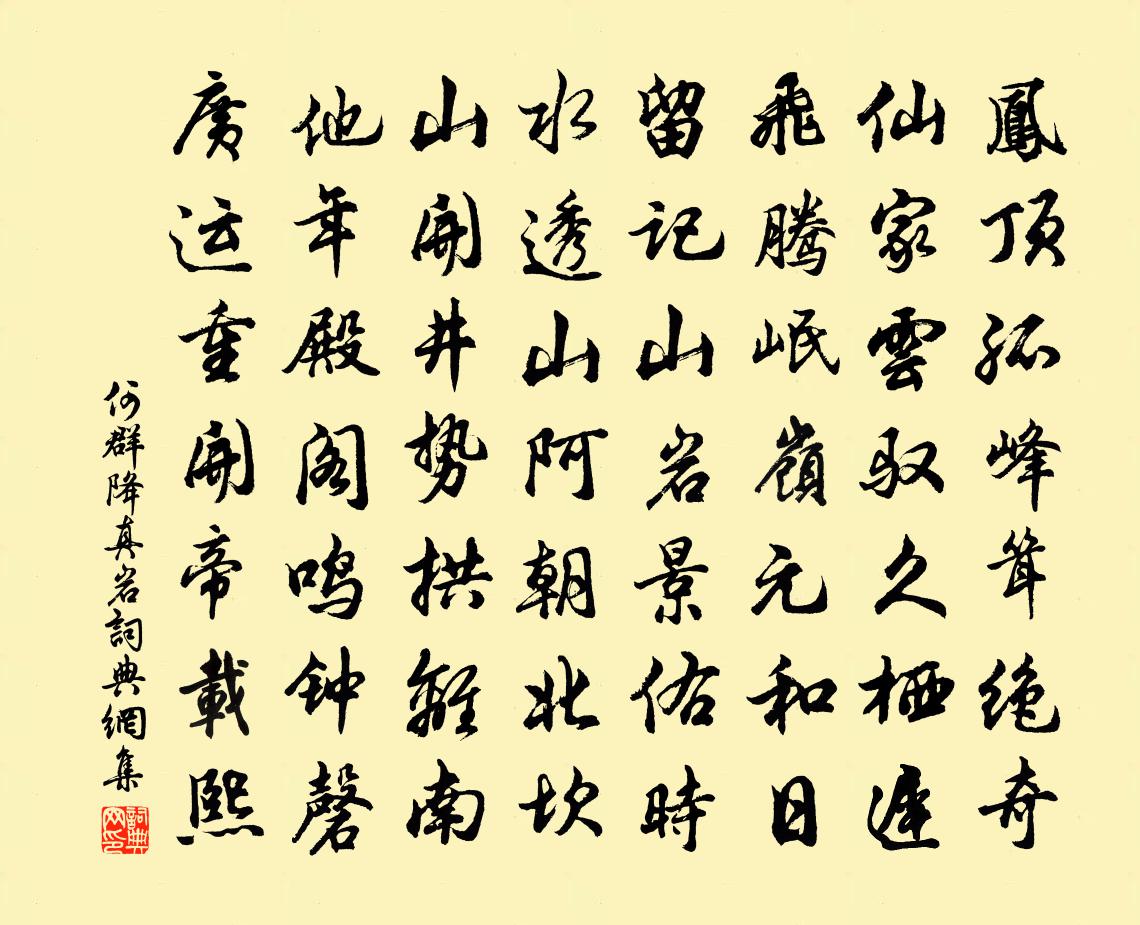 鳳顶孤峰耸绝奇
仙家雲驭久栖遲
飛腾岷嶺元和日
留记山岩景佑時
水透山阿朝北坎
山開井势拱離南
他年殿阁鸣钟磬
廣运重開帝載熙
何群降真岩詞典網集
詞典网印